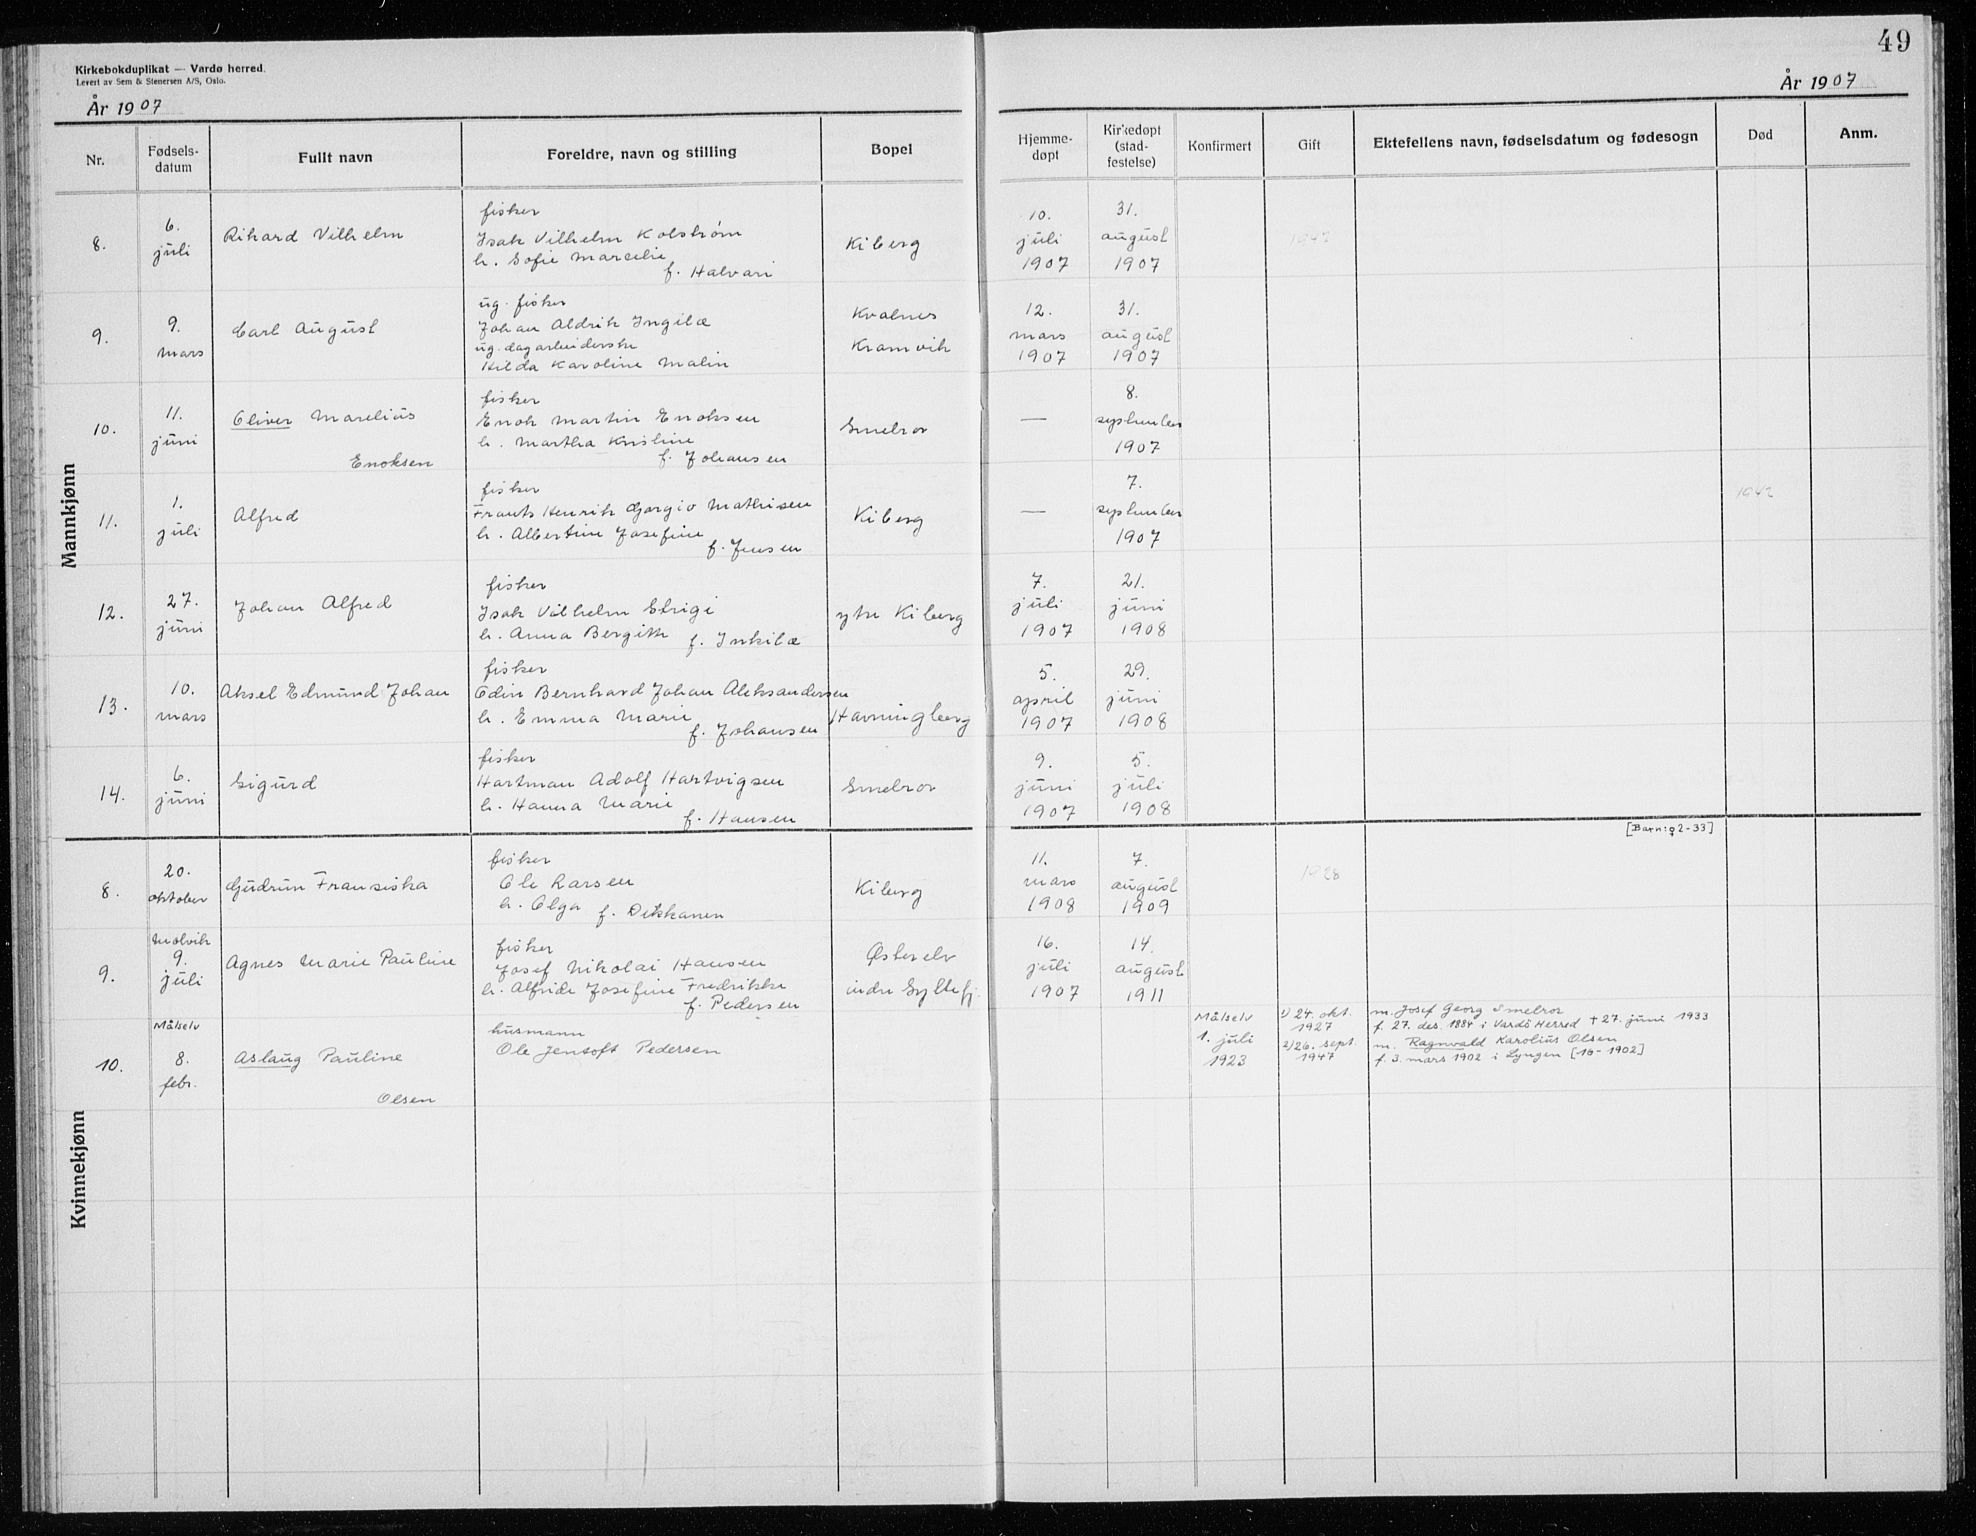 49
Kirkebokduplikat — Vardø herred.
Levert av Sem & Stenersen A/S, Oslo.
År 1907
År 1907
Nr. Fødsels-datum Fullt navn Foreldre, navn og stilling Bopel Hjemme-døpt Kirkedøpt (stad-festelse) Konfirmert Gift Ektefellens navn, fødselsdatum og fødesogn Død Anm.
Mannkjønn
8. 6. juli Rikard Vilhelm
fisker
Isak Vilhelm Kolstrøm
h. Sofie Marcelie
f. Halvari
Kiberg
10. juli 1907
31. august 1907
1947
9. 9. mars Carl August
ug. fisker
Johan Aldrik Ingilæ
ug. dagarbeiderske
Hilda Karoline Malin
Kvalnes
Kramvik
12. mars 1907
31. august 1907
10. 11. juni Oliver Marelius
Enoksen
fisker
Enok Martin Enoksen
h. Martha Kristine
f. Johansen
Smelror
—
8. september 1907
11. 1. juli Alfred
fisker
Frants Henrik Gorgio Mathisen
h. Albertine Josefine
f. Jensen
Kiberg
—
7. september 1907
1942
12. 27. juni Johan Alfred
fisker
Isak Vilhelm
h. Anna Bergitte f. Inkilæ
ytre Kiberg
7. juli 1907
21. juni 1908
13. 10. mars Aksel Edmund Johan
fisker
Odin Bernhard Johan Aleksandersen
h. Emma Marie
f. Johansen
Havningberg
5. april 1907
29. juni 1908
14. 6. juni Sigurd
fisker
Hartman Adolf Hartvigsen
h. Hanna Marie
f. Hansen
Smelror
9. juni 1907
5. juli 1908
[Barn: 2-33]
Kvinnekjønn
8. 20. oktober Gudrun Fransiska
fisker
Ole Larsen
h. Olga f. Dikkanen
Kiberg
11. mars 1908
7. august 1909
1928
9. Molvik 9. juli Agnes Marie Pauline
fisker
Josef Nikolai Hansen
h. Alfride Josefine Fredrikke
f. Pedersen
Østerelv
indre Syltefj.
16. juli 1907
14. august 1911
10. Målselv 8. febr. Aslaug Pauline
Olsen
husmann
Ole Jentoft Pedersen
Målselv 1. juli 1923
1) 24. okt. 1927
m. Josef Georg Smelror
f. 27. des. 1884 i Vardö Herred † 27. juni 1933
2) 26. sept. 1947
m. Ragnvald Karolius Olsen
f. 3. mars 1902 i Lyngen [16-1902]